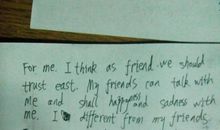 For me. I think as friend. we should
trust east. My friends can talk with
me and shall happyness and sadness with
me. I different from my friends.